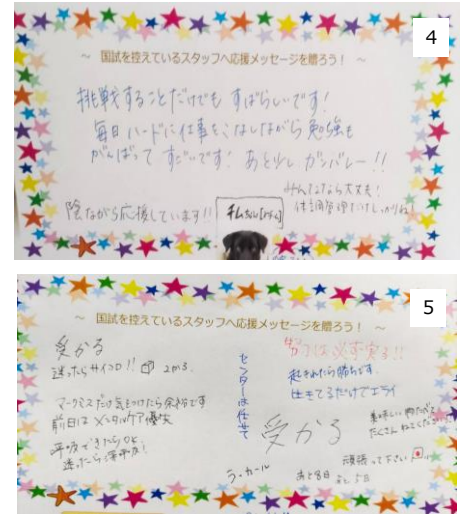 4
～ 国試を控えているスタッフへ応援メッセージを贈ろう！ ～
挑戦することだけでも すばらしいです!
毎日 ハードに仕事をこなしながら 勉強も
がんばって すごいです! あと少し ガンバレー!!
みんななら大丈夫!
体調管理だけしっかりね!
陰ながら応援しています!!
5
～ 国試を控えているスタッフへ応援メッセージを贈ろう！ ～
受かる
迷ったらサイコロ!!
マークミスだけ気をつけたら余裕です
前日は メンタルケア優先
呼吸できたらOK
迷ったら深呼吸!
センターは任せて
努力は必ず実る!!
起きれたら勝ちです。
生きてるだけでエライ
受かる
美味しい物たべて
たくさん ねてください
頑張って下さい
ラ・カール
あと8日
あと5日